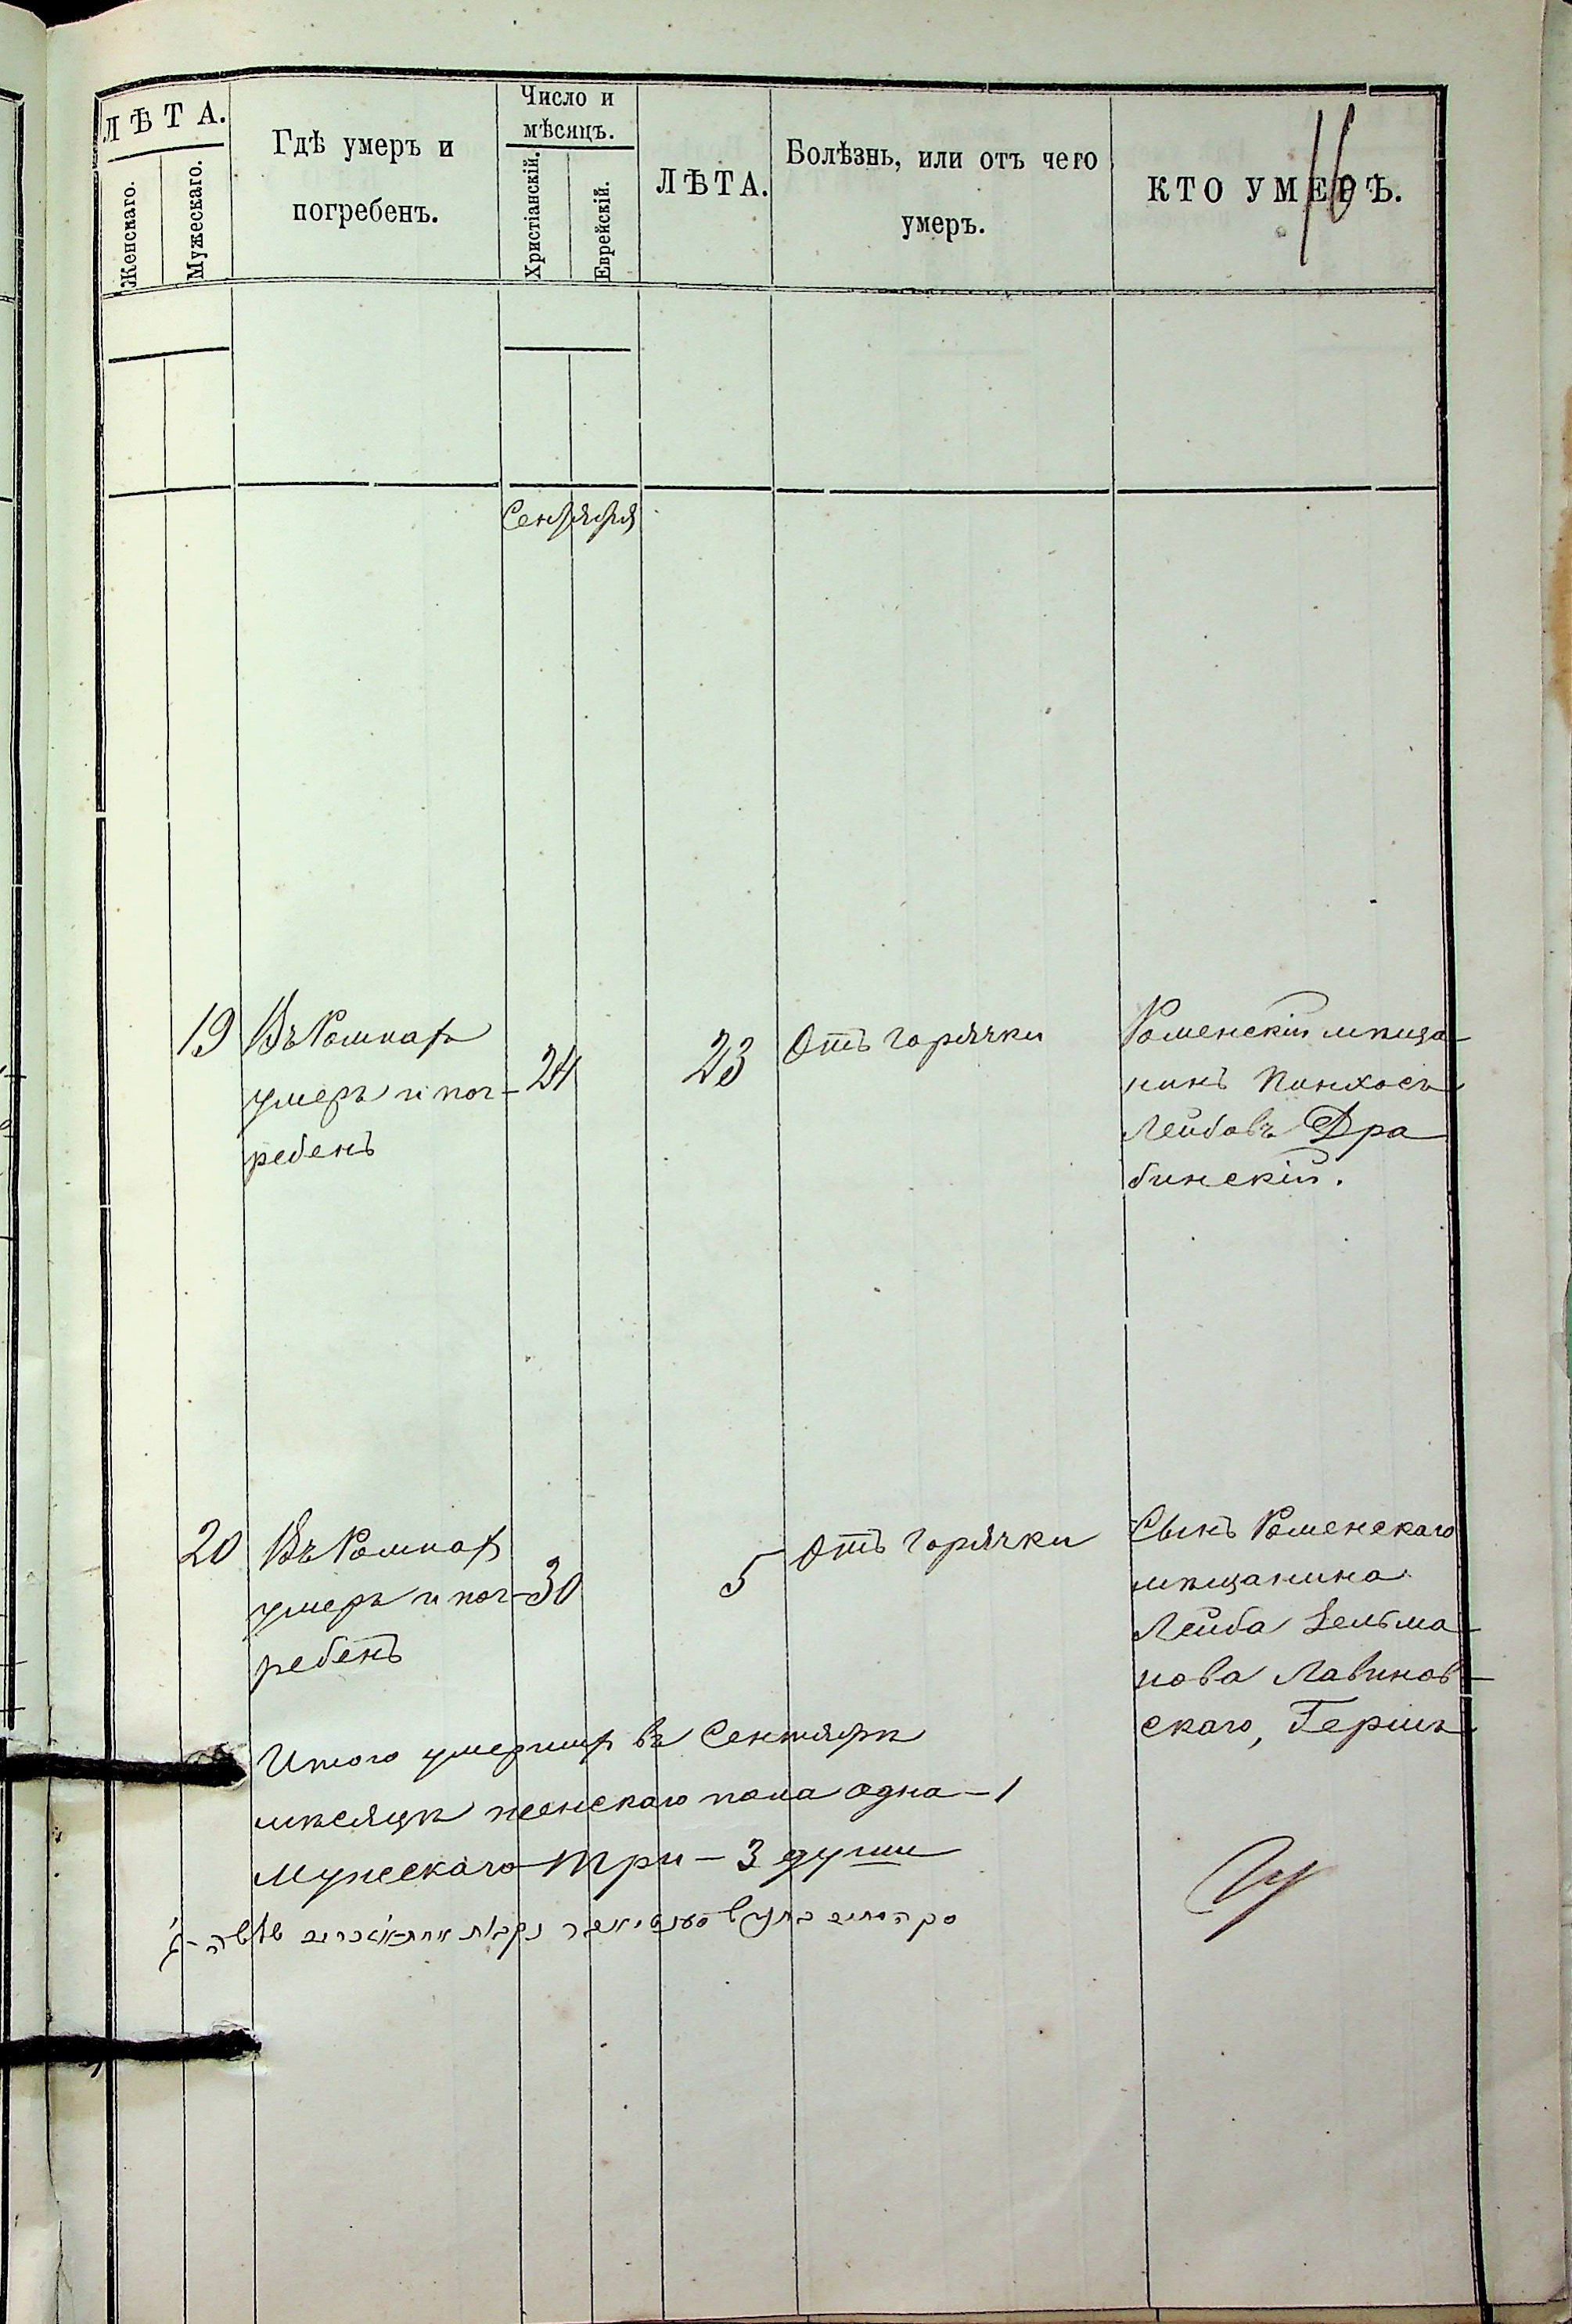 ЛѢТА.
Женскаго.
Мужескаго.
Гдѣ умеръ и
погребенъ.
Число и
мѣсяцъ.
Христіанскій.
Еврейскій.
ЛѢТА.
Болѣзнь, или отъ чего
умеръ.
КТО УМЕРЪ.
16
Сентября
19
Въ Ромнах
умеръ и пог-
ребенъ
24
23
Отъ горячки
Роменскій мѣща-
нинъ Пинхосъ
Лейбовъ Дра
бинскій.
20
Въ Ромнах
умеръ и пог-
ребенъ
30
5
Отъ горячки
Сынъ Роменскаго
мѣщанина
Лейба Зельма-
нова Лавинов-
скаго, Гершъ
Итого умерших въ Сентябрѣ
мѣсяцѣ женскаго пола одна - 1
Мужескаго три - 3 души